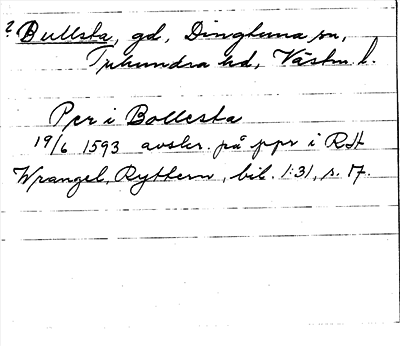 ? Bullsta, gd, Dingtuna sn,
Tuhundra hd, Västm. l.
Per i Bollesta
19/6 1593 avskr. på ppr i RHA
Wrangel, Ryttern, bil. 1:31, s. 17.